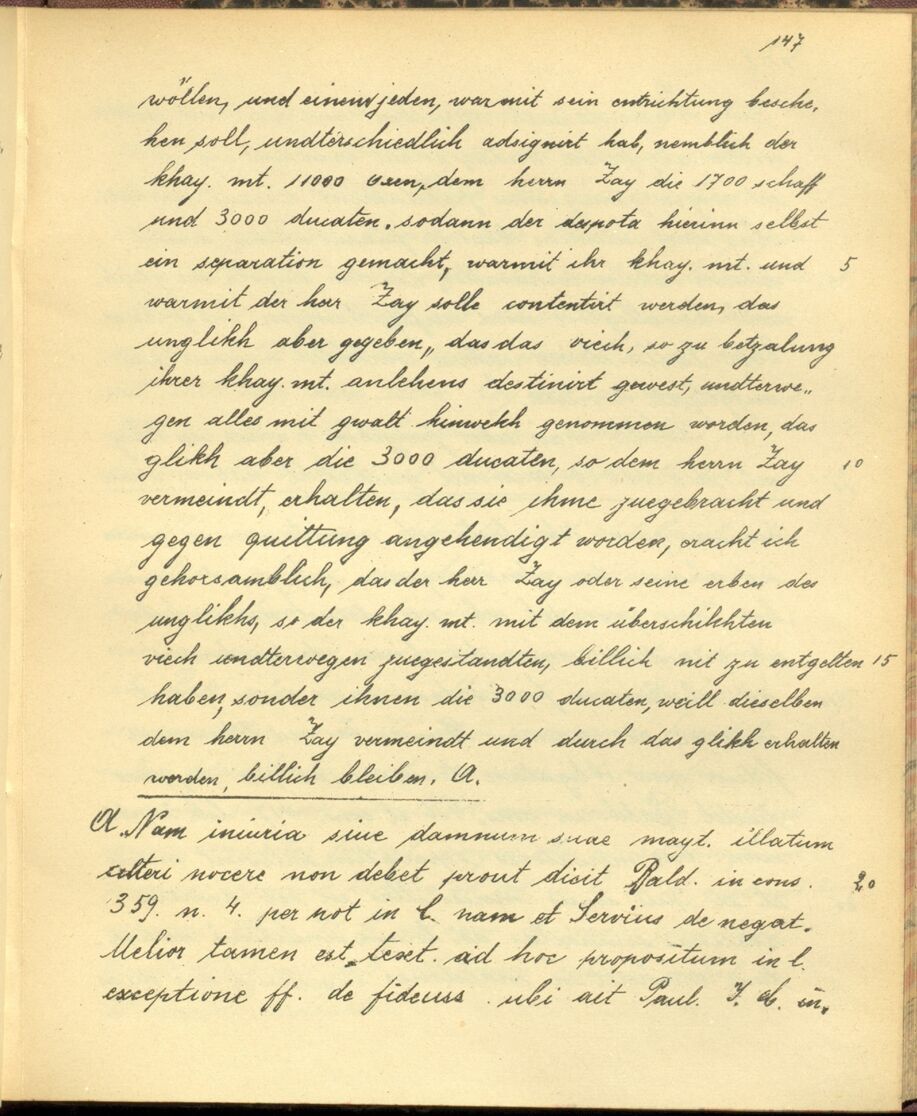 147
wöllen, und einem jeden, warmit sein entrichtung besche„
hen soll, undterschiedlich adsignirt hab, nemblich der
khay. mt. 11000 oxen, dem herrn Zay die 1700 schaff
und 3000 ducaten. sodann der despota hierinn selbst
ein separation gemacht, warmit ihr khay. mt. und 5
warmit der herr Zay solle contentirt werden, das
unglikh aber gegeben, das das viech, so zu betzalung
ihrer khay. mt. anlehens destinirt gewest, undterwe„
gen alles mit gwalt hinwekh genommen worden, das
glikh aber die 3000 ducaten, so dem herrn Zay 10
vermeindt, erhalten, das sie ihme zuegebracht und
gegen quittung angehendigt worden, eracht ich
gehorsamblich, das der herr Zay oder seine erben des
unglikhs, so der khay. mt. mit dem überschikhten
viech undterwegen zuegestandten, billich nit zu entgelten 15
haben, sonder ihnen die 3000 ducaten, weill dieselben
dem herrn Zay vermeindt und durch das glikh erhalten
worden, billich bleiben. A.
A. Nam iniuria sive damnum suae mayt. illatum
alteri nocere non debet prout dicit Bald. in cons. 20
359. n. 4. per not in l. nam et Servius de negot.
Melior tamen est text. ad hoc propositum in l.
exceptione ff. de fideuss. ubi ait Paul. J. C. in„